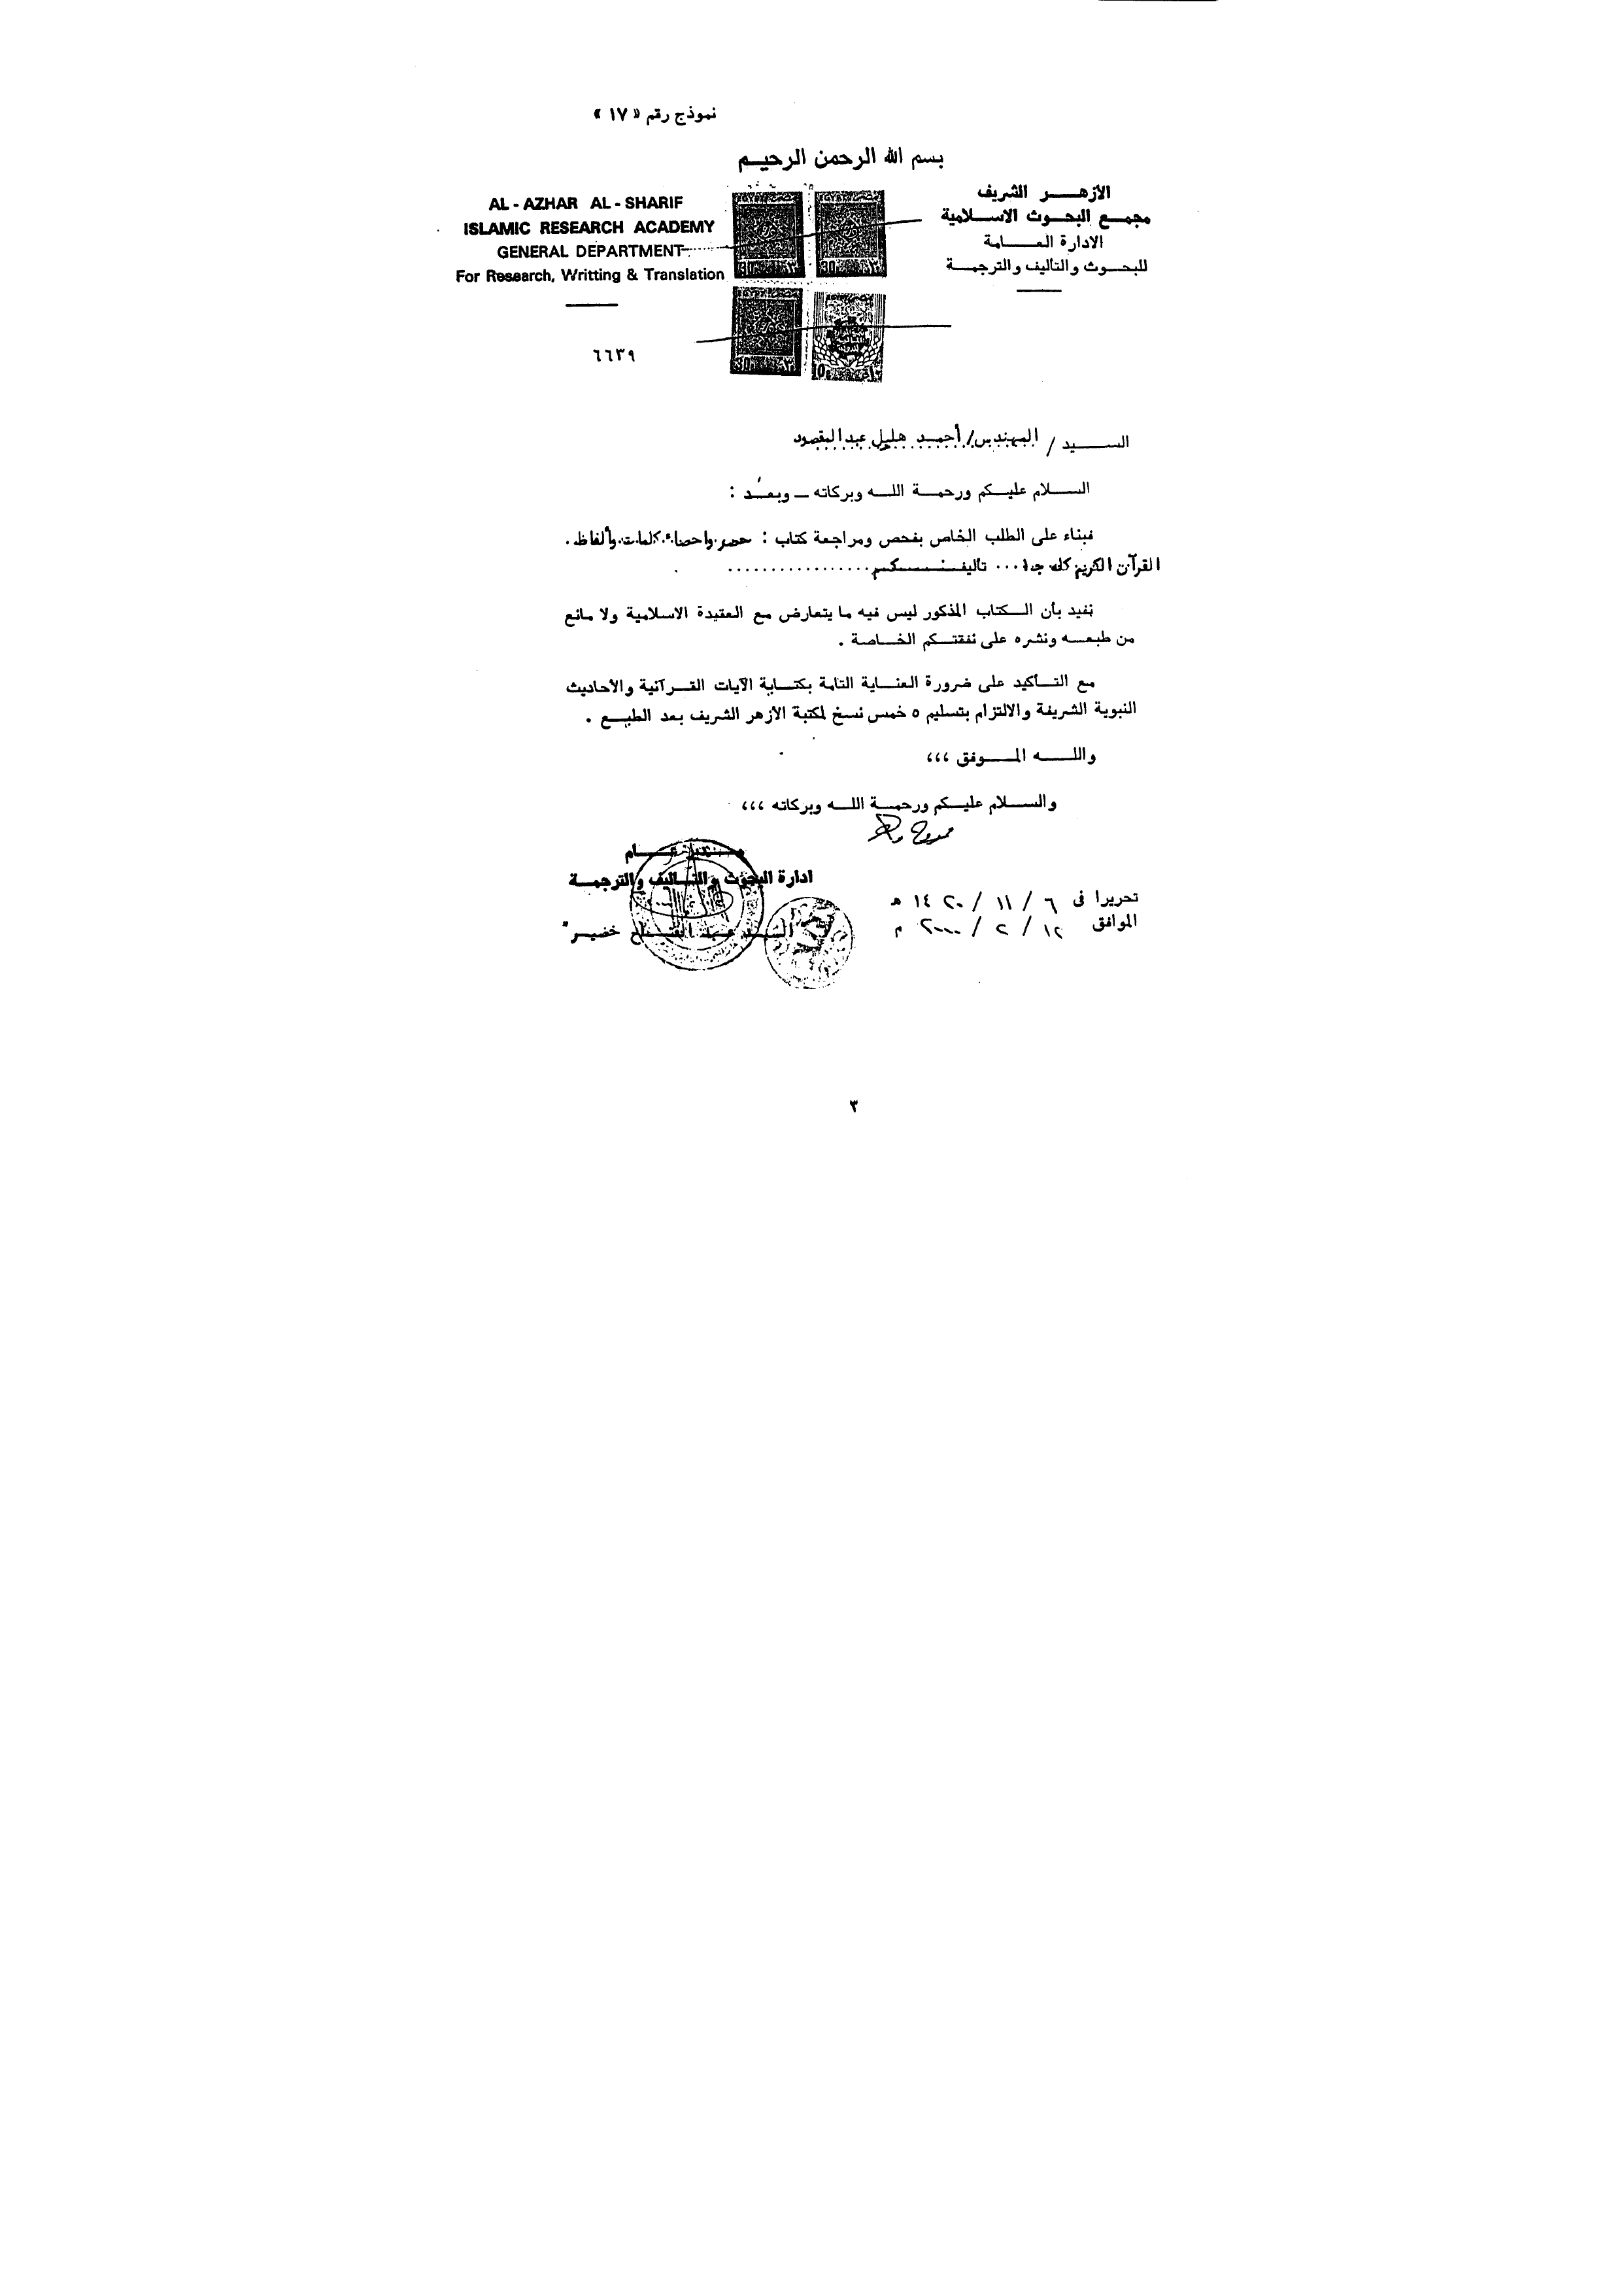 نموذج رقم « ١٧ »
بسم الله الرحمن الرحيم
الأزهر الشريف
مجمع البحوث الاسلامية
الادارة العامة
للبحوث والتأليف والترجمة
AL - AZHAR AL - SHARIF
ISLAMIC RESEARCH ACADEMY
GENERAL DEPARTMENT
For Research, Writting & Translation
٦٦٣٩
السيد / المهندس/ أحمد هليل عبد المقصود
السلام عليكم ورحمة الله وبركاته ـ وبعد :
فبناء على الطلب الخاص بفحص ومراجعة كتاب : حصر واحصاء كلمات وألفاظ
القرآن الكريم كله ... تأليفكم ................
نفيد بأن الكتاب المذكور ليس فيه ما يتعارض مع العقيدة الاسلامية ولا مانع
من طبعه ونشره على نفقتكم الخاصة .
مع التأكيد على ضرورة العناية التامة بكتابة الآيات القرآنية والأحاديث
النبوية الشريفة والالتزام بتسليم ٥ خمس نسخ لمكتبة الأزهر الشريف بعد الطبع .
والله الموفق ،،،
والسلام عليكم ورحمة الله وبركاته ،،،
مدير عام
ادارة البحوث والتأليف والترجمة
السيد عبد الفتاح خضير"
تحريرا فى ٦ / ١١ / ١٤٢٠ هـ
الموافق ١٢ / ٢ / ٢٠٠٠ م
٣